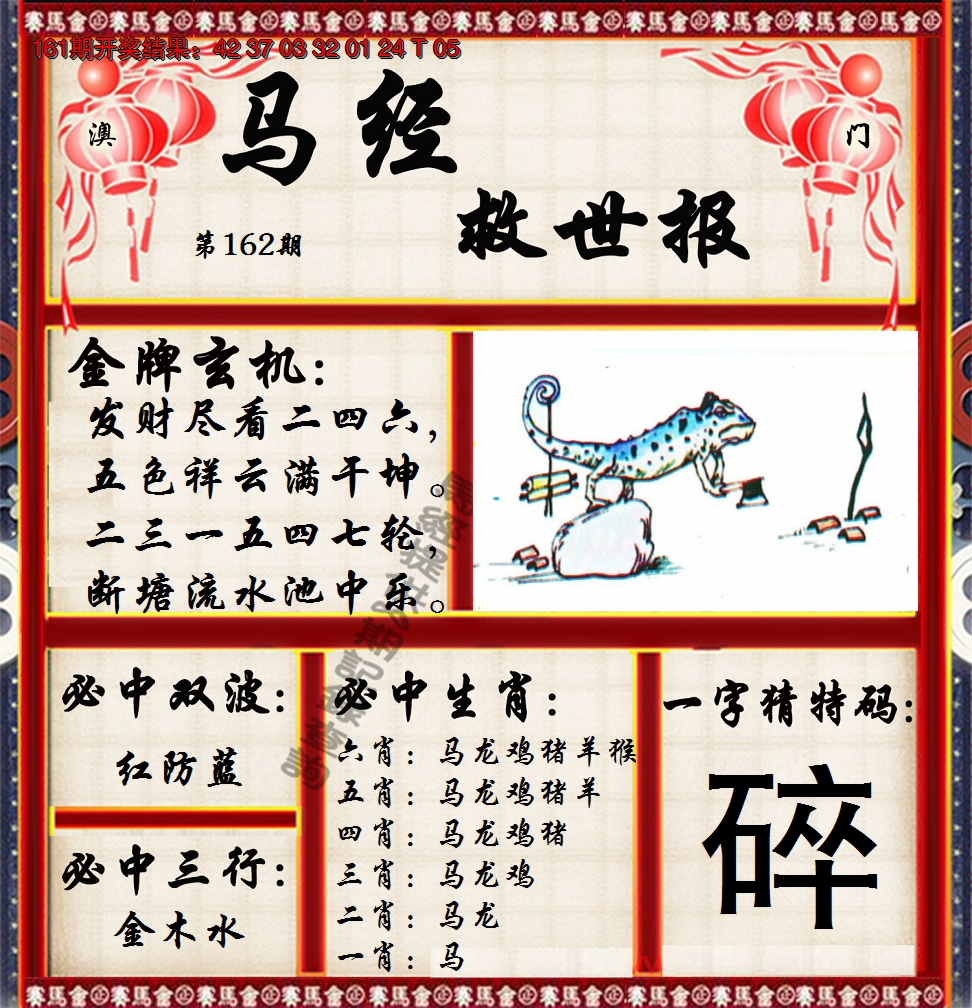 161期开奖结果：42 37 03 32 01 24 T 05
澳
门
马经
救世报
第162期
金牌玄机：
发财尽看二四六，
五色祥云满干坤。
二三一五四七轮，
断塘流水池中乐。
必中双波：
红防蓝
必中三行：
金木水
必中生肖：
六肖：马龙鸡猪羊猴
五肖：马龙鸡猪羊
四肖：马龙鸡猪
三肖：马龙鸡
二肖：马龙
一肖：马
一字猜特码：
碎